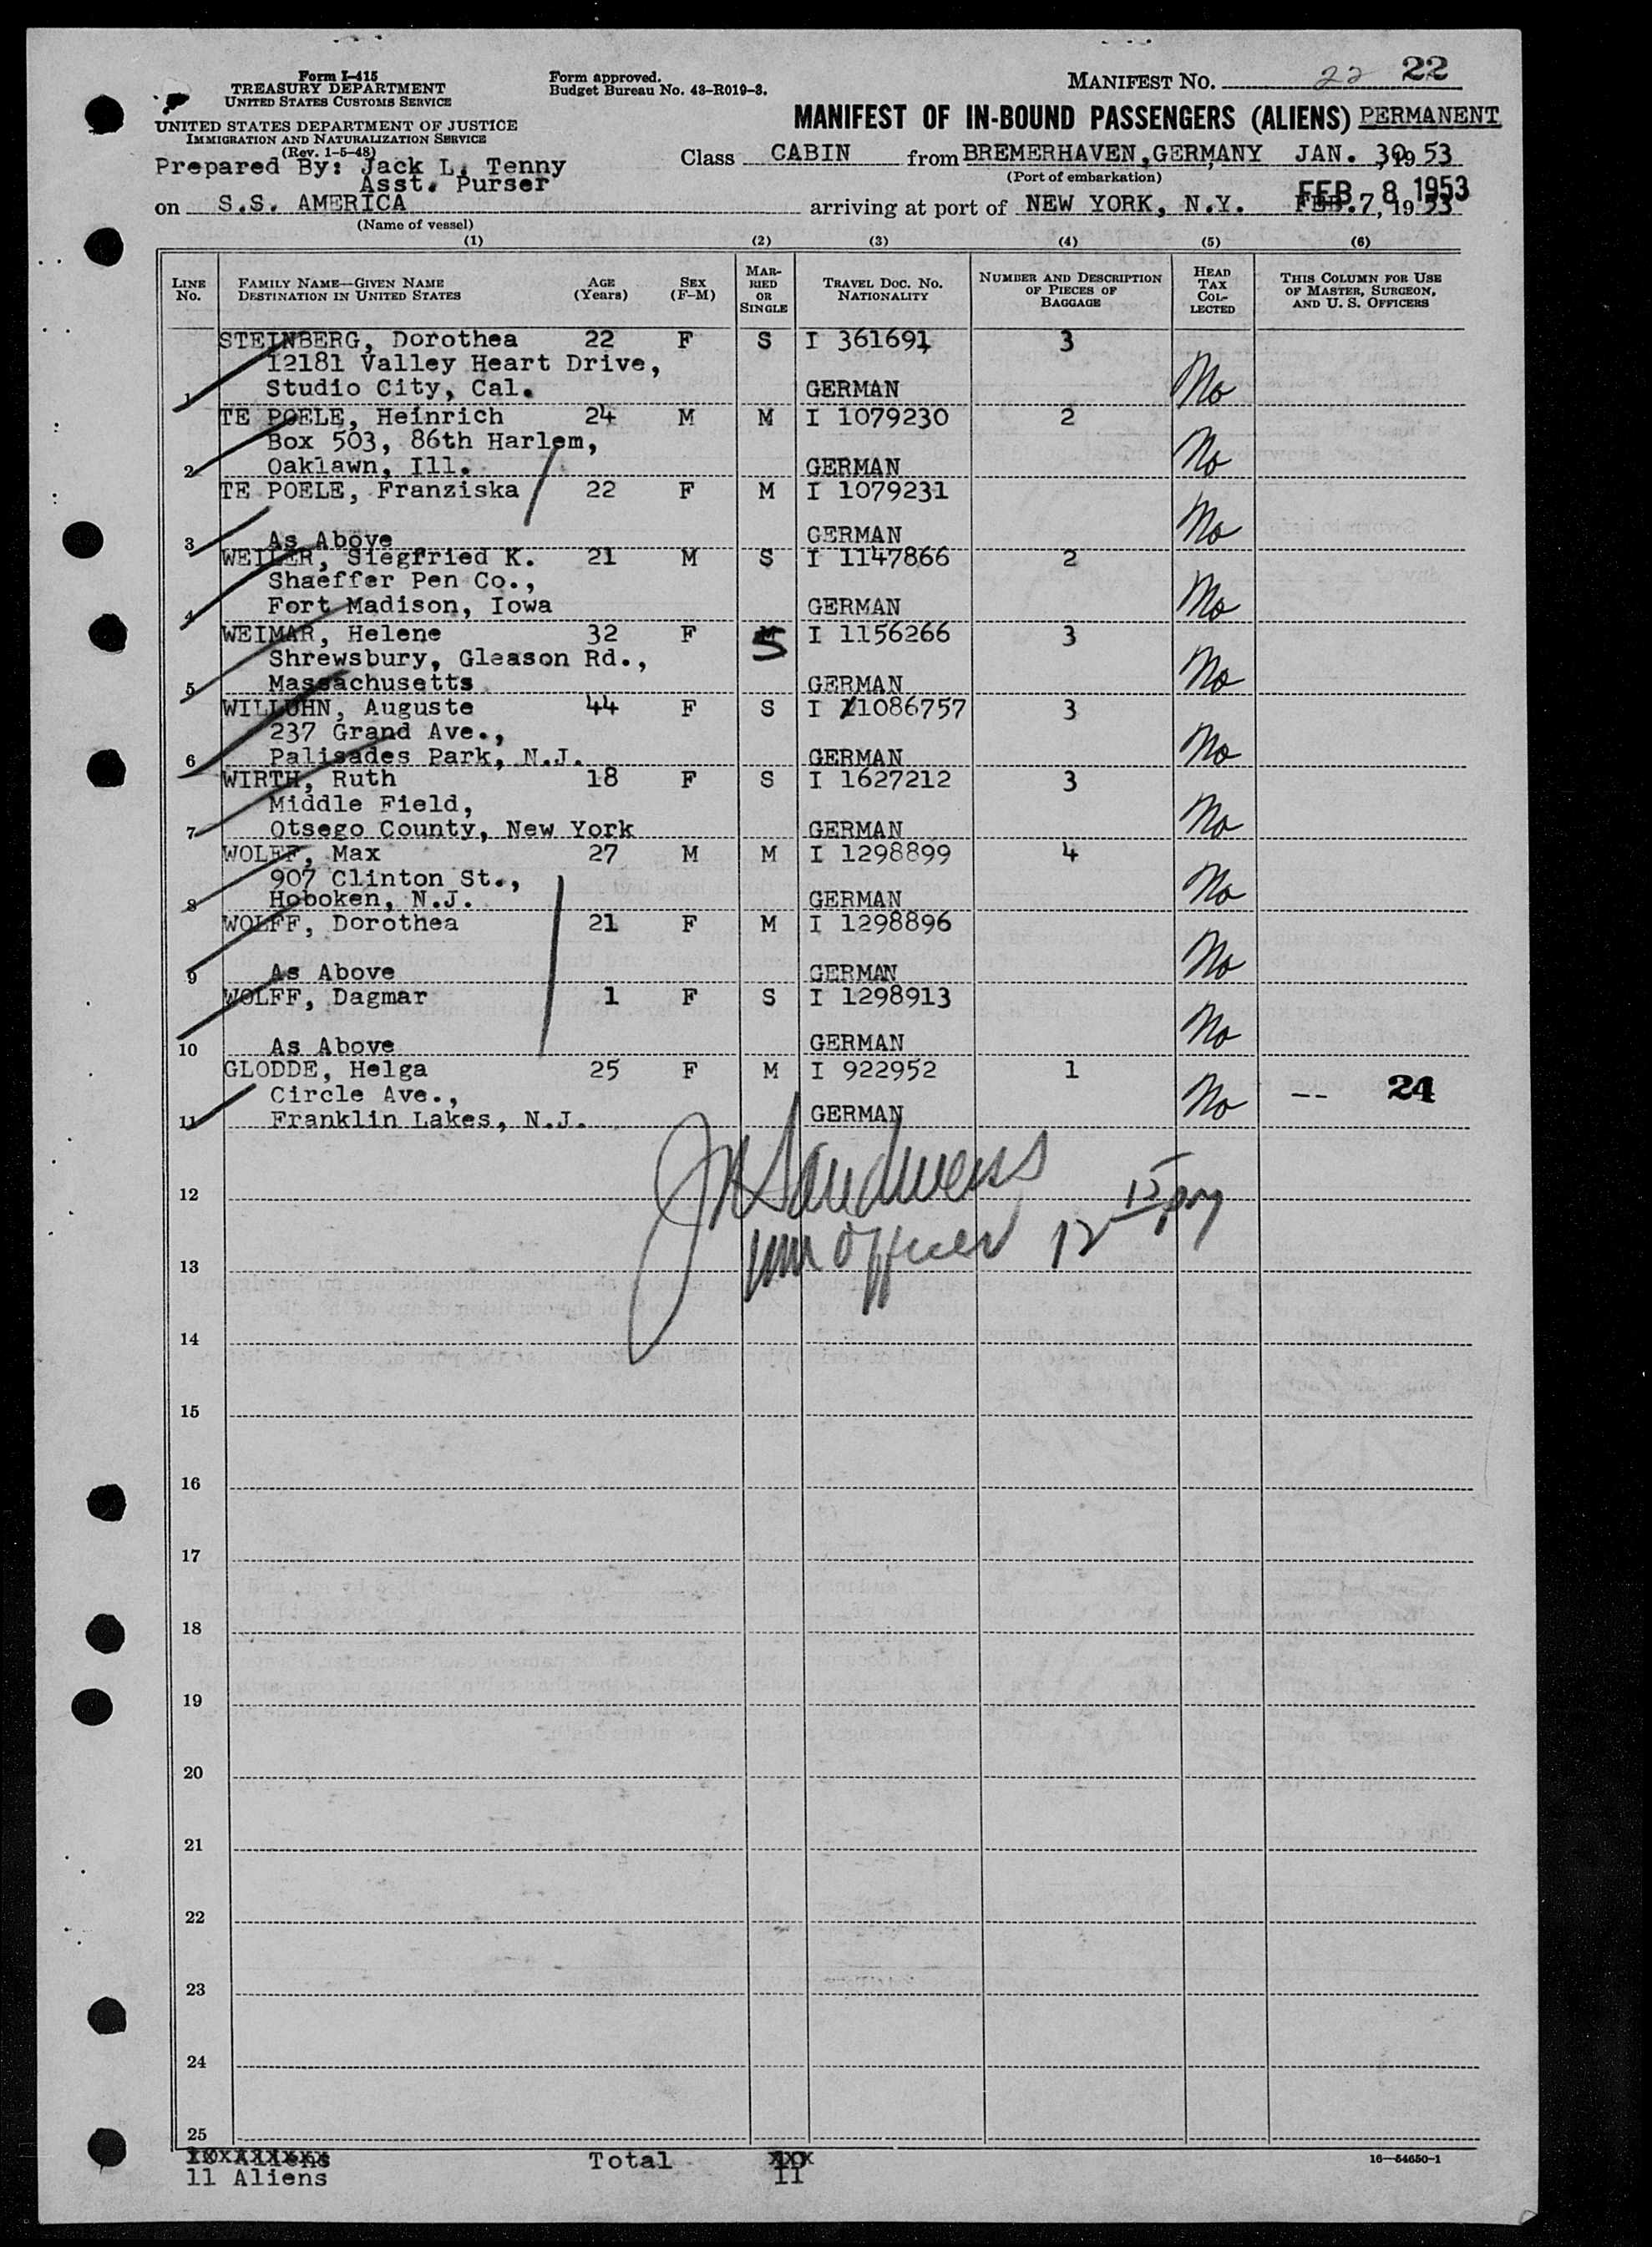 Form I-415
TREASURY DEPARTMENT
UNITED STATES CUSTOMS SERVICE
UNITED STATES DEPARTMENT OF JUSTICE
IMMIGRATION AND NATURALIZATION SERVICE
(Rev. 1-5-48)
Form approved.
Budget Bureau No. 43-R019-3.
MANIFEST NO. 22 22
MANIFEST OF IN-BOUND PASSENGERS (ALIENS) PERMANENT
Prepared By: Jack L. Tenny
Asst. Purser
Class CABIN from BREMERHAVEN, GERMANY JAN. 30, 19 53
(Port of embarkation)
FEB 8 1953
on S.S. AMERICA arriving at port of NEW YORK, N.Y. FEB. 7, 19 53
(Name of vessel)
(1) (2) (3) (4) (5) (6)
LINE No. FAMILY NAME—GIVEN NAME DESTINATION IN UNITED STATES AGE (Years) SEX (F-M) MARRIED OR SINGLE TRAVEL DOC. NO. NATIONALITY NUMBER AND DESCRIPTION OF PIECES OF BAGGAGE HEAD TAX COLLECTED THIS COLUMN FOR USE OF MASTER, SURGEON, AND U. S. OFFICERS
STEINBERG, Dorothea 22 F S I 361691 3
12181 Valley Heart Drive,
1 Studio City, Cal. GERMAN No
TE POELE, Heinrich 24 M M I 1079230 2
Box 503, 86th Harlem,
2 Oaklawn, Ill. GERMAN No
TE POELE, Franziska 22 F M I 1079231
3 As Above GERMAN No
WEILER, Siegfried K. 21 M S I 1147866 2
Shaeffer Pen Co.,
4 Fort Madison, Iowa GERMAN No
WEIMAR, Helene 32 F S I 1156266 3
Shrewsbury, Gleason Rd.,
5 Massachusetts GERMAN No
WILLUHN, Auguste 44 F S I 11086757 3
237 Grand Ave.,
6 Palisades Park, N.J. GERMAN No
WIRTH, Ruth 18 F S I 1627212 3
Middle Field,
7 Otsego County, New York GERMAN No
WOLFF, Max 27 M M I 1298899 4
907 Clinton St.,
8 Hoboken, N.J. GERMAN No
WOLFF, Dorothea 21 F M I 1298896
9 As Above GERMAN No
WOLFF, Dagmar 1 F S I 1298913
10 As Above GERMAN No
GLODDE, Helga 25 F M I 922952 1
Circle Ave., No -- 24
11 Franklin Lakes, N.J. GERMAN
12
Imm Officer 12 15 pm
13
14
15
16
17
18
19
20
21
22
23
24
25
10 Aliens Total 10
11 Aliens 11
16—54650-1